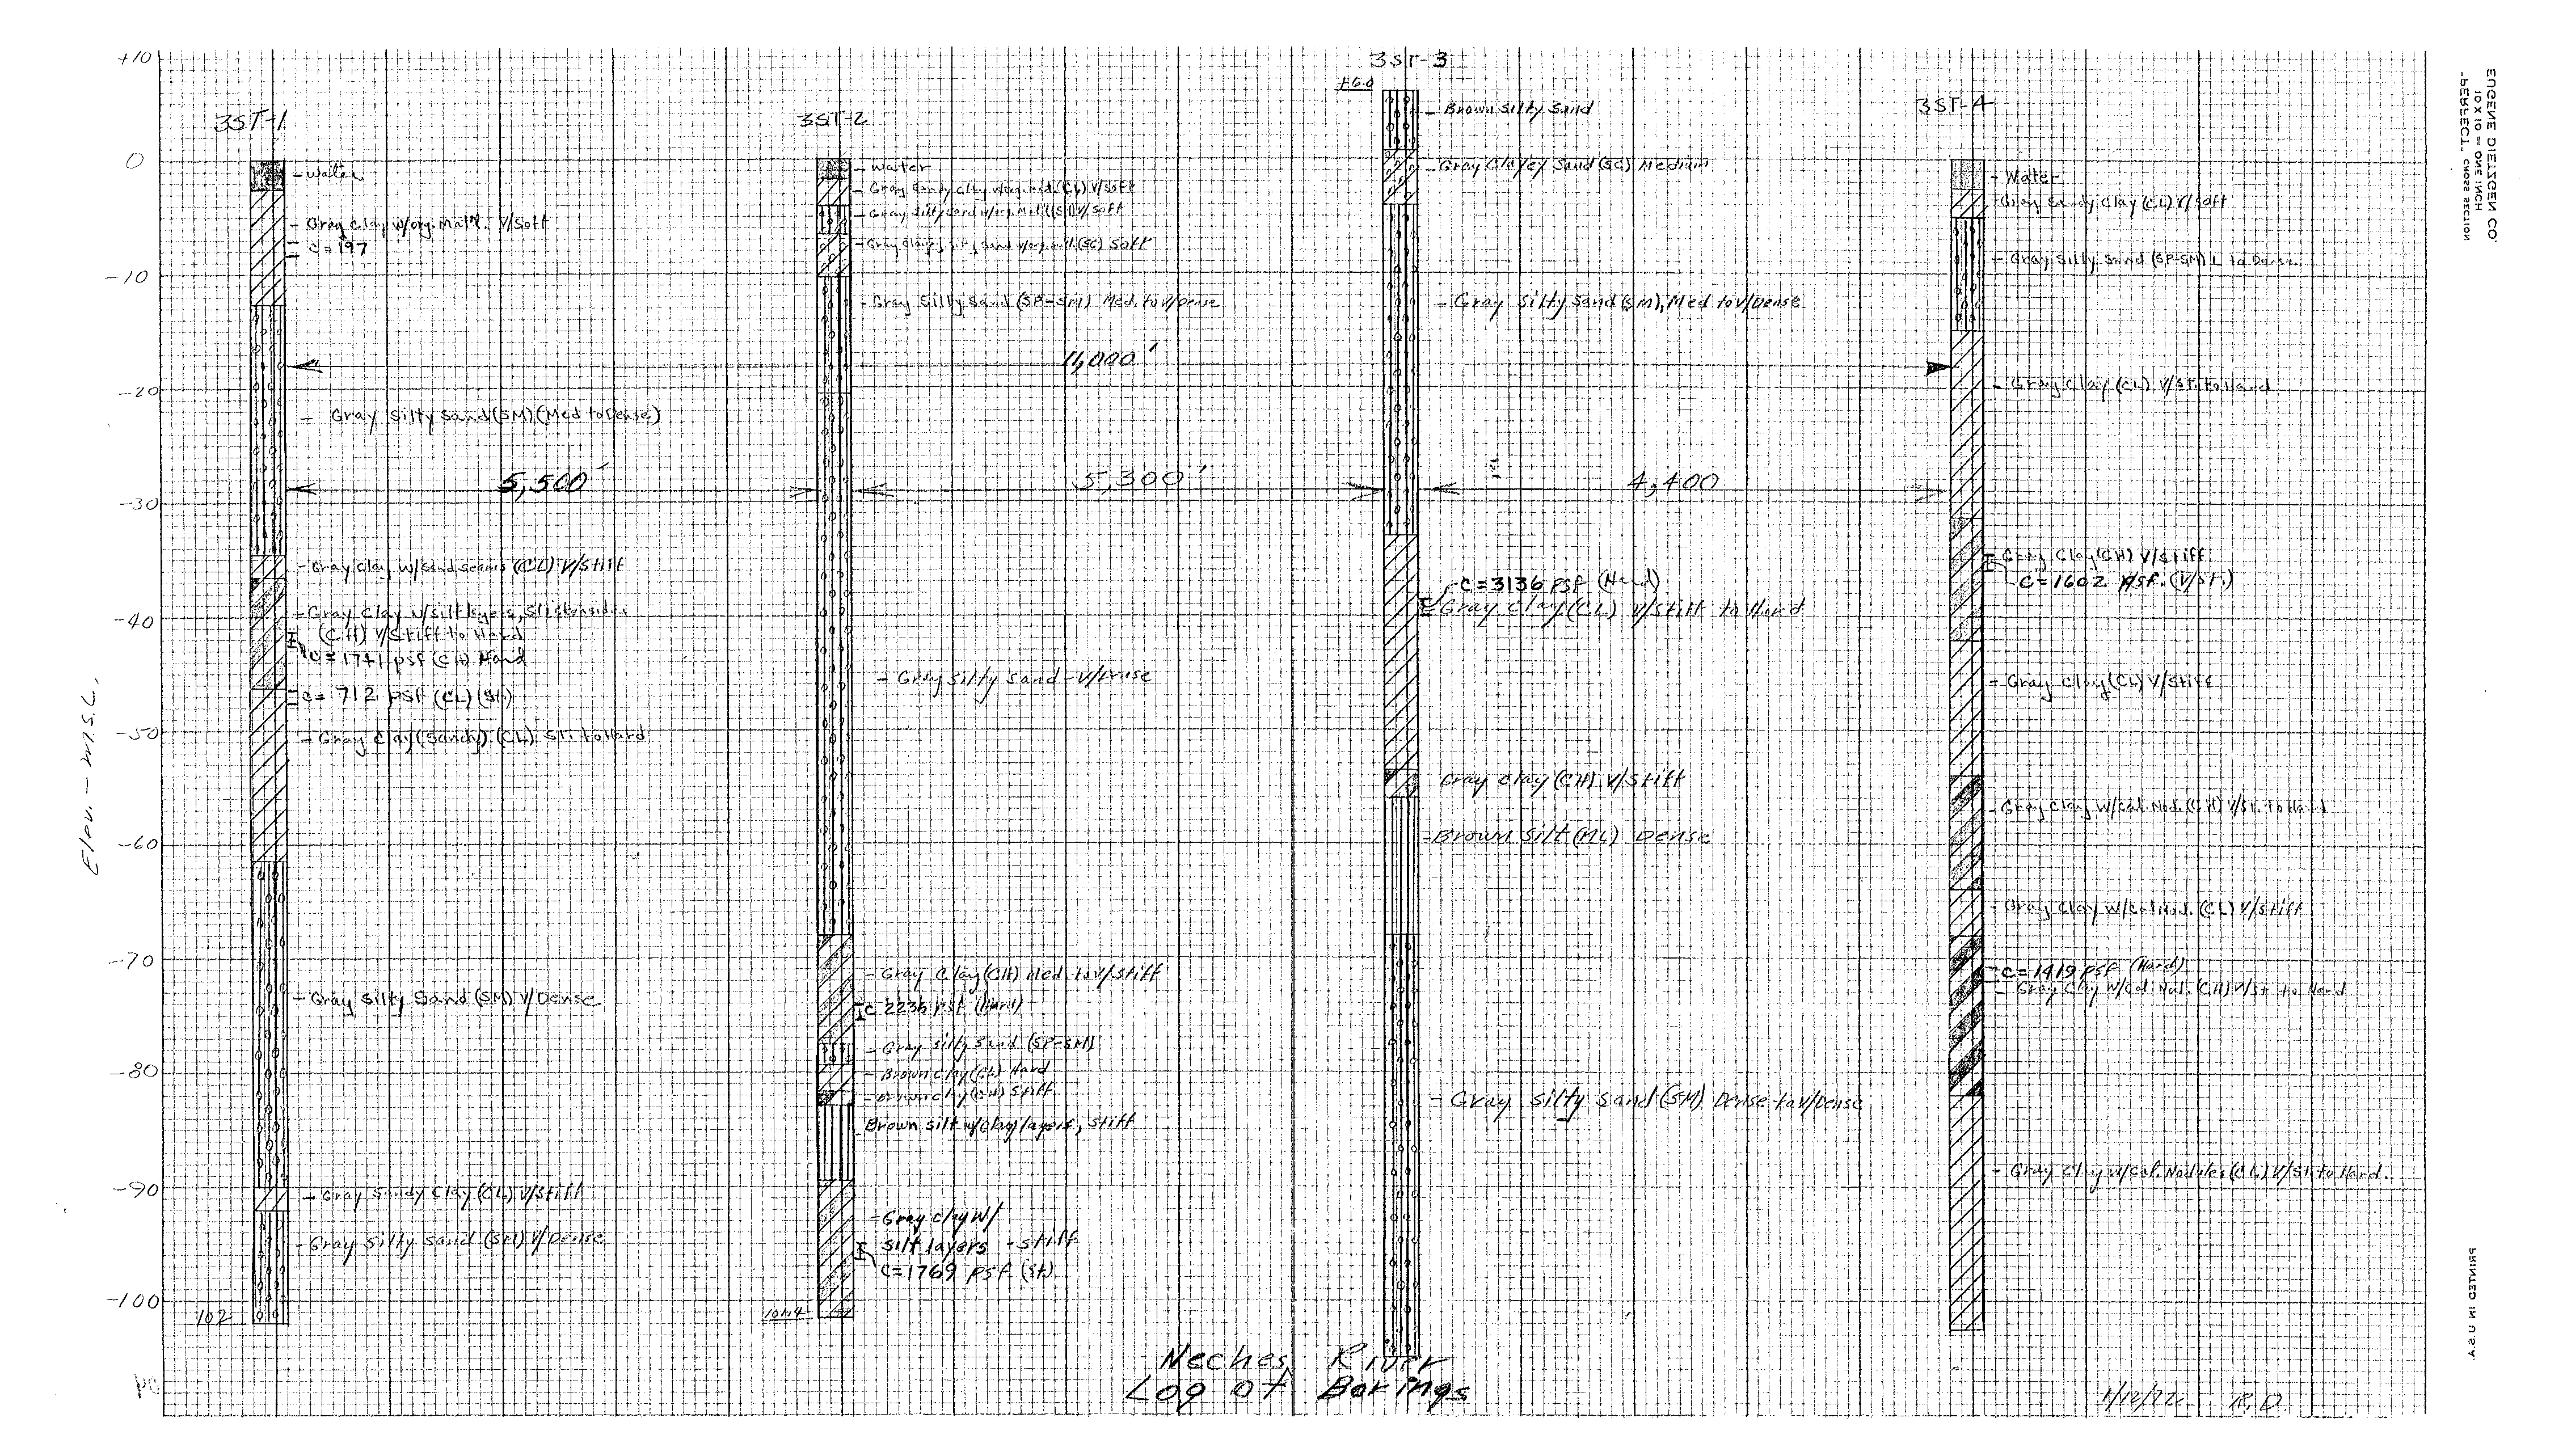 +10
0
-10
-20
-30
-40
-50
-60
-70
-80
-90
-100
Elev. - M.S.L.
3ST-1
- Water
- Gray Clay w/org. Mat'l. V/Soft
C=197
- Gray Silty Sand (SM) (Med to Dense)
- Gray Clay w/Sand seams (CL) V/Stiff
- Gray Clay w/Silt layers, Slickensides
(CH) V/Stiff to Hard
C=1741 psf (CH) Hard
C= 712 psf (CL) (St.)
- Gray Clay (Sandy) (CL) St. to Hard
- Gray Silty Sand (SM) V/Dense
- Gray Sandy Clay (CL) V/Stiff
- Gray Silty Sand (SM) V/Dense
102
5,500'
3ST-2
- Water
- Gray Sandy Clay w/org. mat. (CL) V/Soft
- Gray Silty Sand w/org. Mat'l V/Soft
- Gray Clayey Silty Sand w/org. mat'l. (SC) Soft
- Gray Silty Sand (SP-SM) Med. to V/Dense
11,000'
5,300'
- Gray Silty Sand - V/Dense
- Gray Clay (CH) Med. to V/Stiff
C 2236 psf (Hard)
- Gray Silty Sand (SP-SM)
- Brown Clay (CL) Hard
- Brown Clay (CH) Stiff
Brown Silt w/clay layers, Stiff
- Gray Clay w/
Silt layers - Stiff
C=1769 psf (St.)
101.4
3ST-3
+6.0
- Brown Silty Sand
- Gray Clayey Sand (SC) Medium
- Gray Silty Sand (SM), Med to V/Dense
4,400
C=3136 psf (Hard)
Gray Clay (CL) V/Stiff to Hard
Gray Clay (CH) V/Stiff
- Brown Silt (ML) Dense
- Gray Silty Sand (SM) Dense to V/Dense
3ST-4
- Water
- Gray Sandy Clay (CL) V/Soft
- Gray Silty Sand (SP-SM) L to Dense
- Gray Clay (CL) V/St. to Hard
Gray Clay (CH) V/Stiff
C=1602 psf. (V/St.)
- Gray Clay (CL) V/Stiff
- Gray Clay w/Cal. Nod. (CH) V/St. to Hard
- Gray Clay w/Cal. Nod. (CL) V/Stiff
C=1419 psf (Hard)
- Gray Clay w/Cal. Nod. (CH) V/St to Hard
- Gray Clay w/Cal. Nodules (CL) V/St. to Hard.
Neches River
Log of Borings
R.D.
EUGENE DIETZGEN CO.
10 X 10 = ONE INCH
PERFECT CROSS SECTION
PRINTED IN U.S.A.